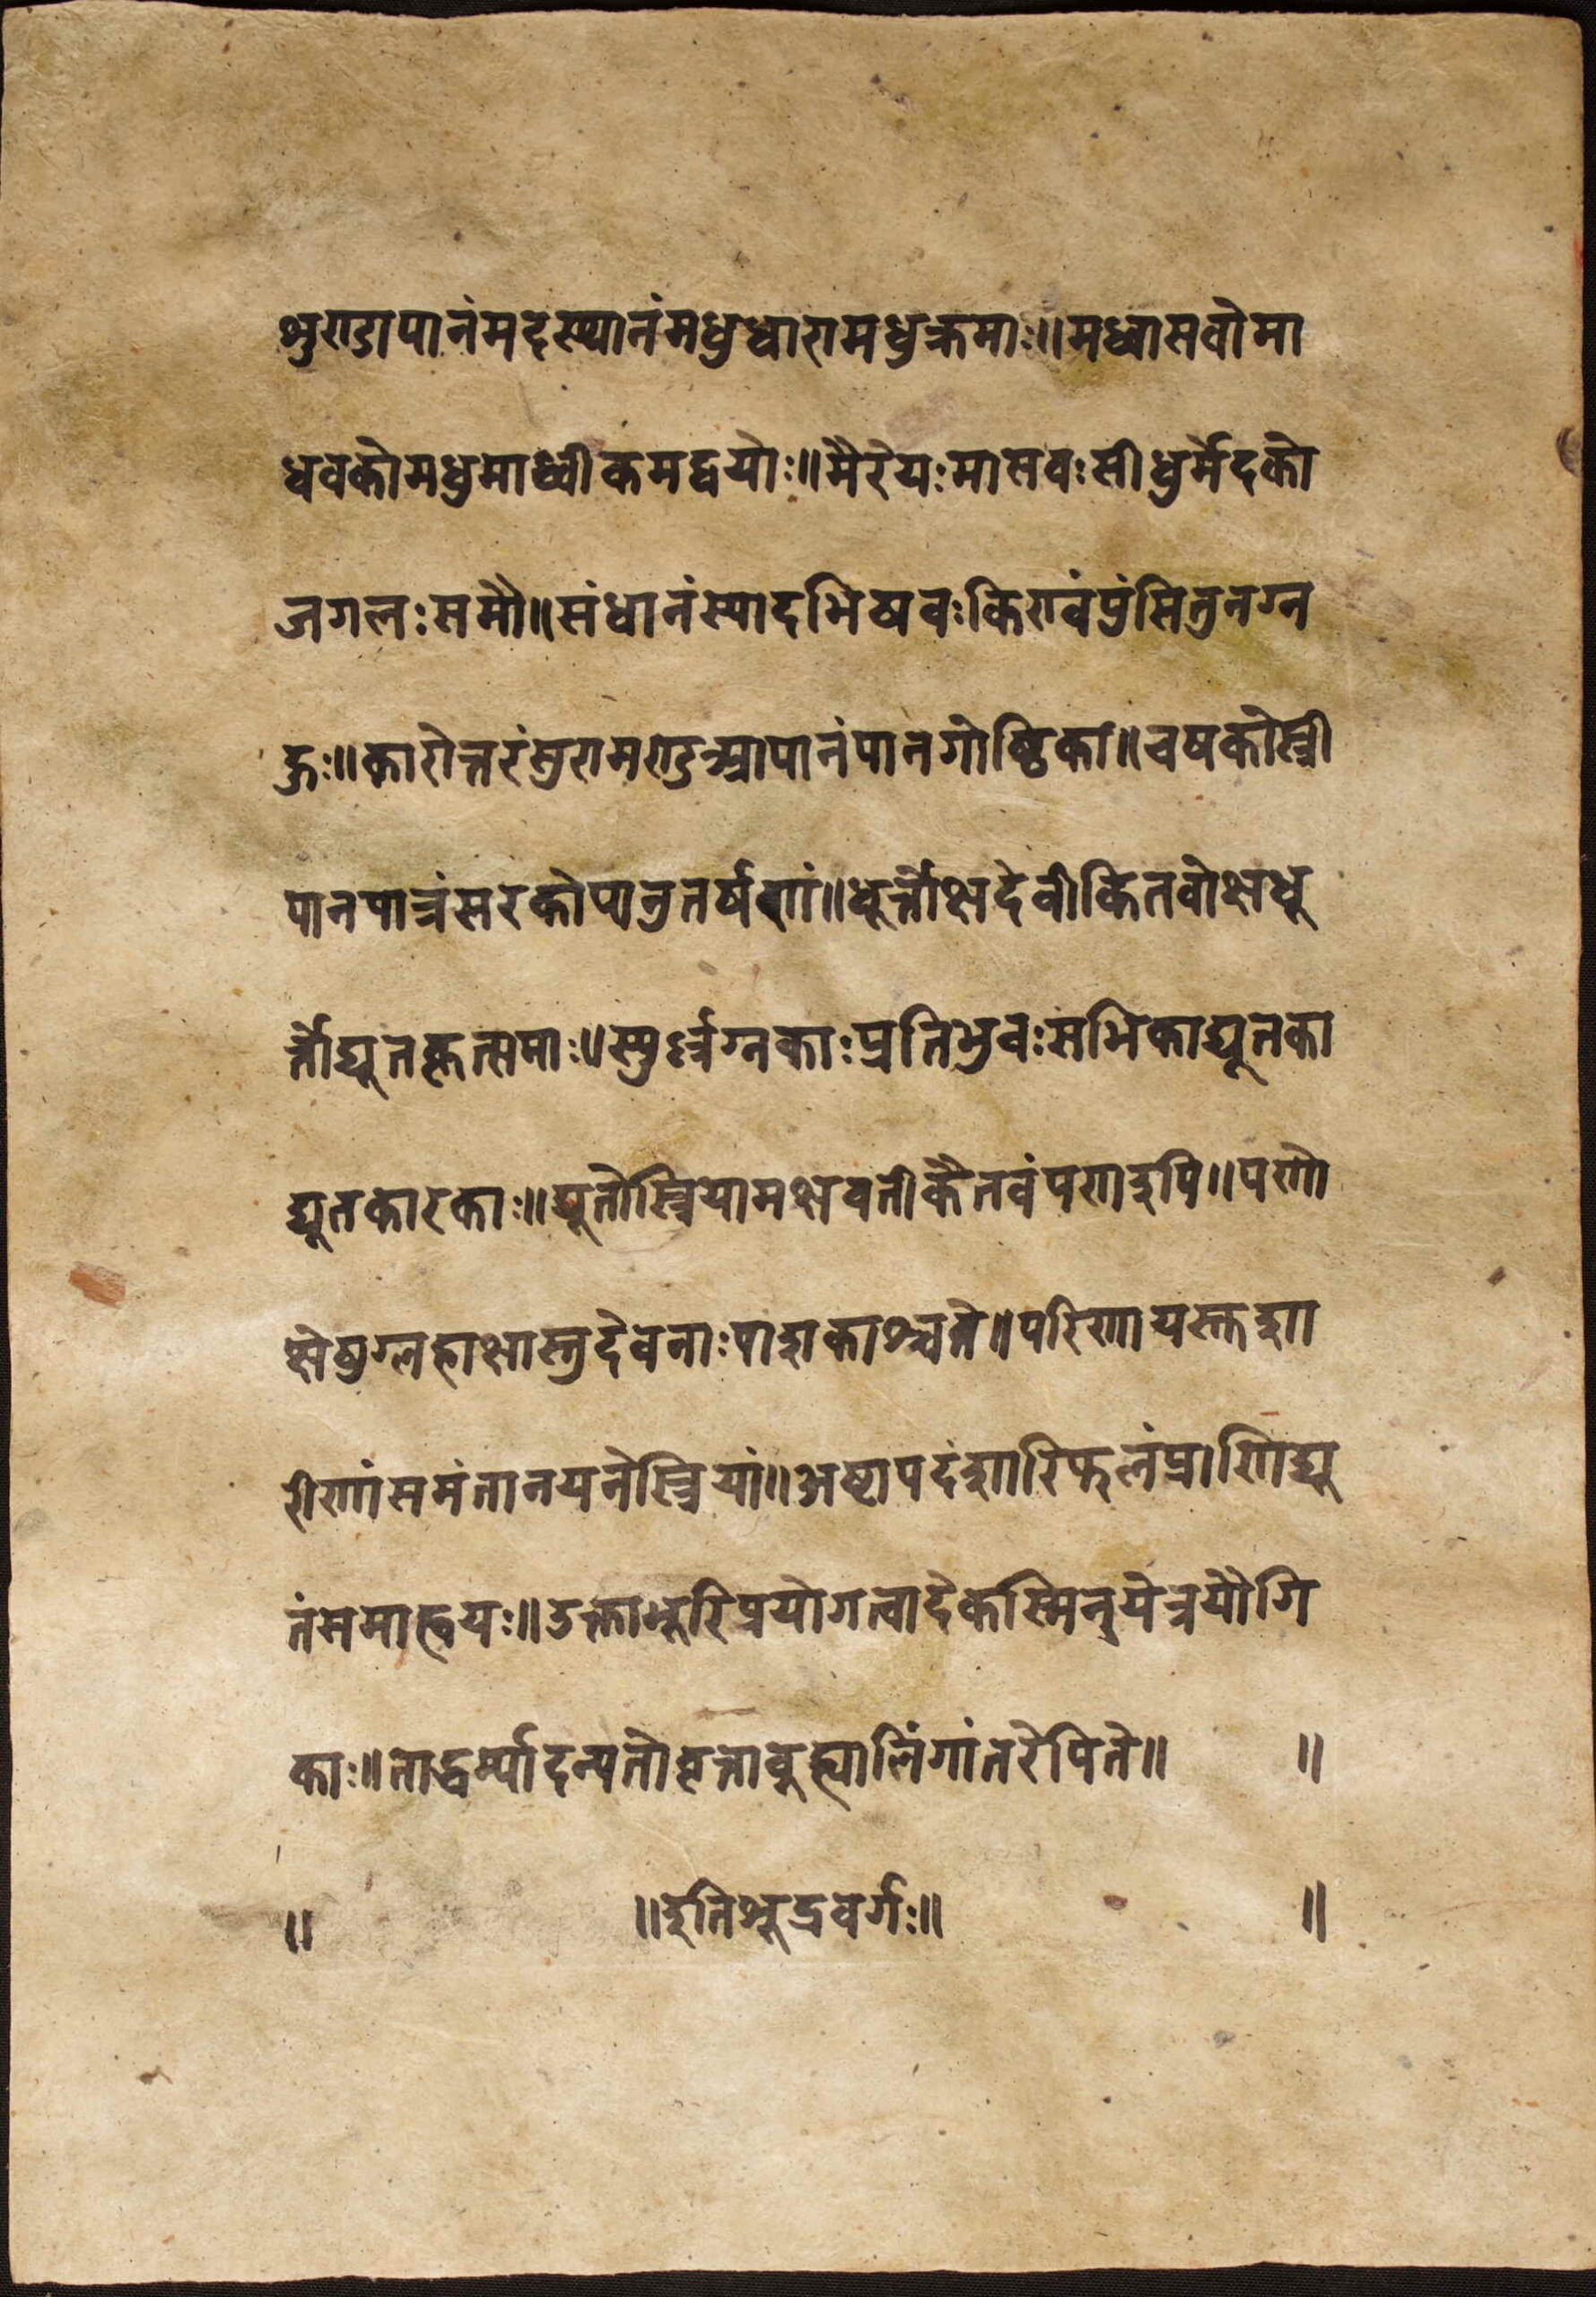 शुण्डापानंमदस्थानंमधुधारामधुक्रमाः॥मध्वासवोमा
धवकोमधुमाध्वीकमद्वयोः॥मैरेयःमासवःसीधुर्मेदको
जगलःसमौ॥संधानंस्यादभिषवःकिण्वंपुंसितुनग्न
हूः॥कारोत्तरंसुरामण्डआपानंपानगोष्ठिका॥चषकोस्त्री
पानपात्रंसरकोप्यनुतर्षणं॥धूर्त्तोक्षदेवीकितवोक्षधू
र्त्तोद्यूतकृत्समाः॥स्युर्ल्लग्नकाःप्रतिभुवःसभिकाद्यूतका
द्यूतकारकाः॥द्यूतोस्त्रियामक्षवतीकैतवंपणइपि॥पणो
क्षेषुग्लहाक्षास्तुदेवनाःपाशकाश्चते॥परिणायस्तशा
रीणांसमंतानयनेस्त्रियां॥अष्टापदंशारिफलंप्राणिद्यू
तंसमाह्वयः॥उक्ताभूरिप्रयोगत्वादेकस्मिन्येत्रयौगि
काः॥ताद्धर्म्यादन्यतोवृत्तावूह्यालिंगांतरेपिते॥ ॥
॥ ॥इतिशूद्रवर्गः॥ ॥